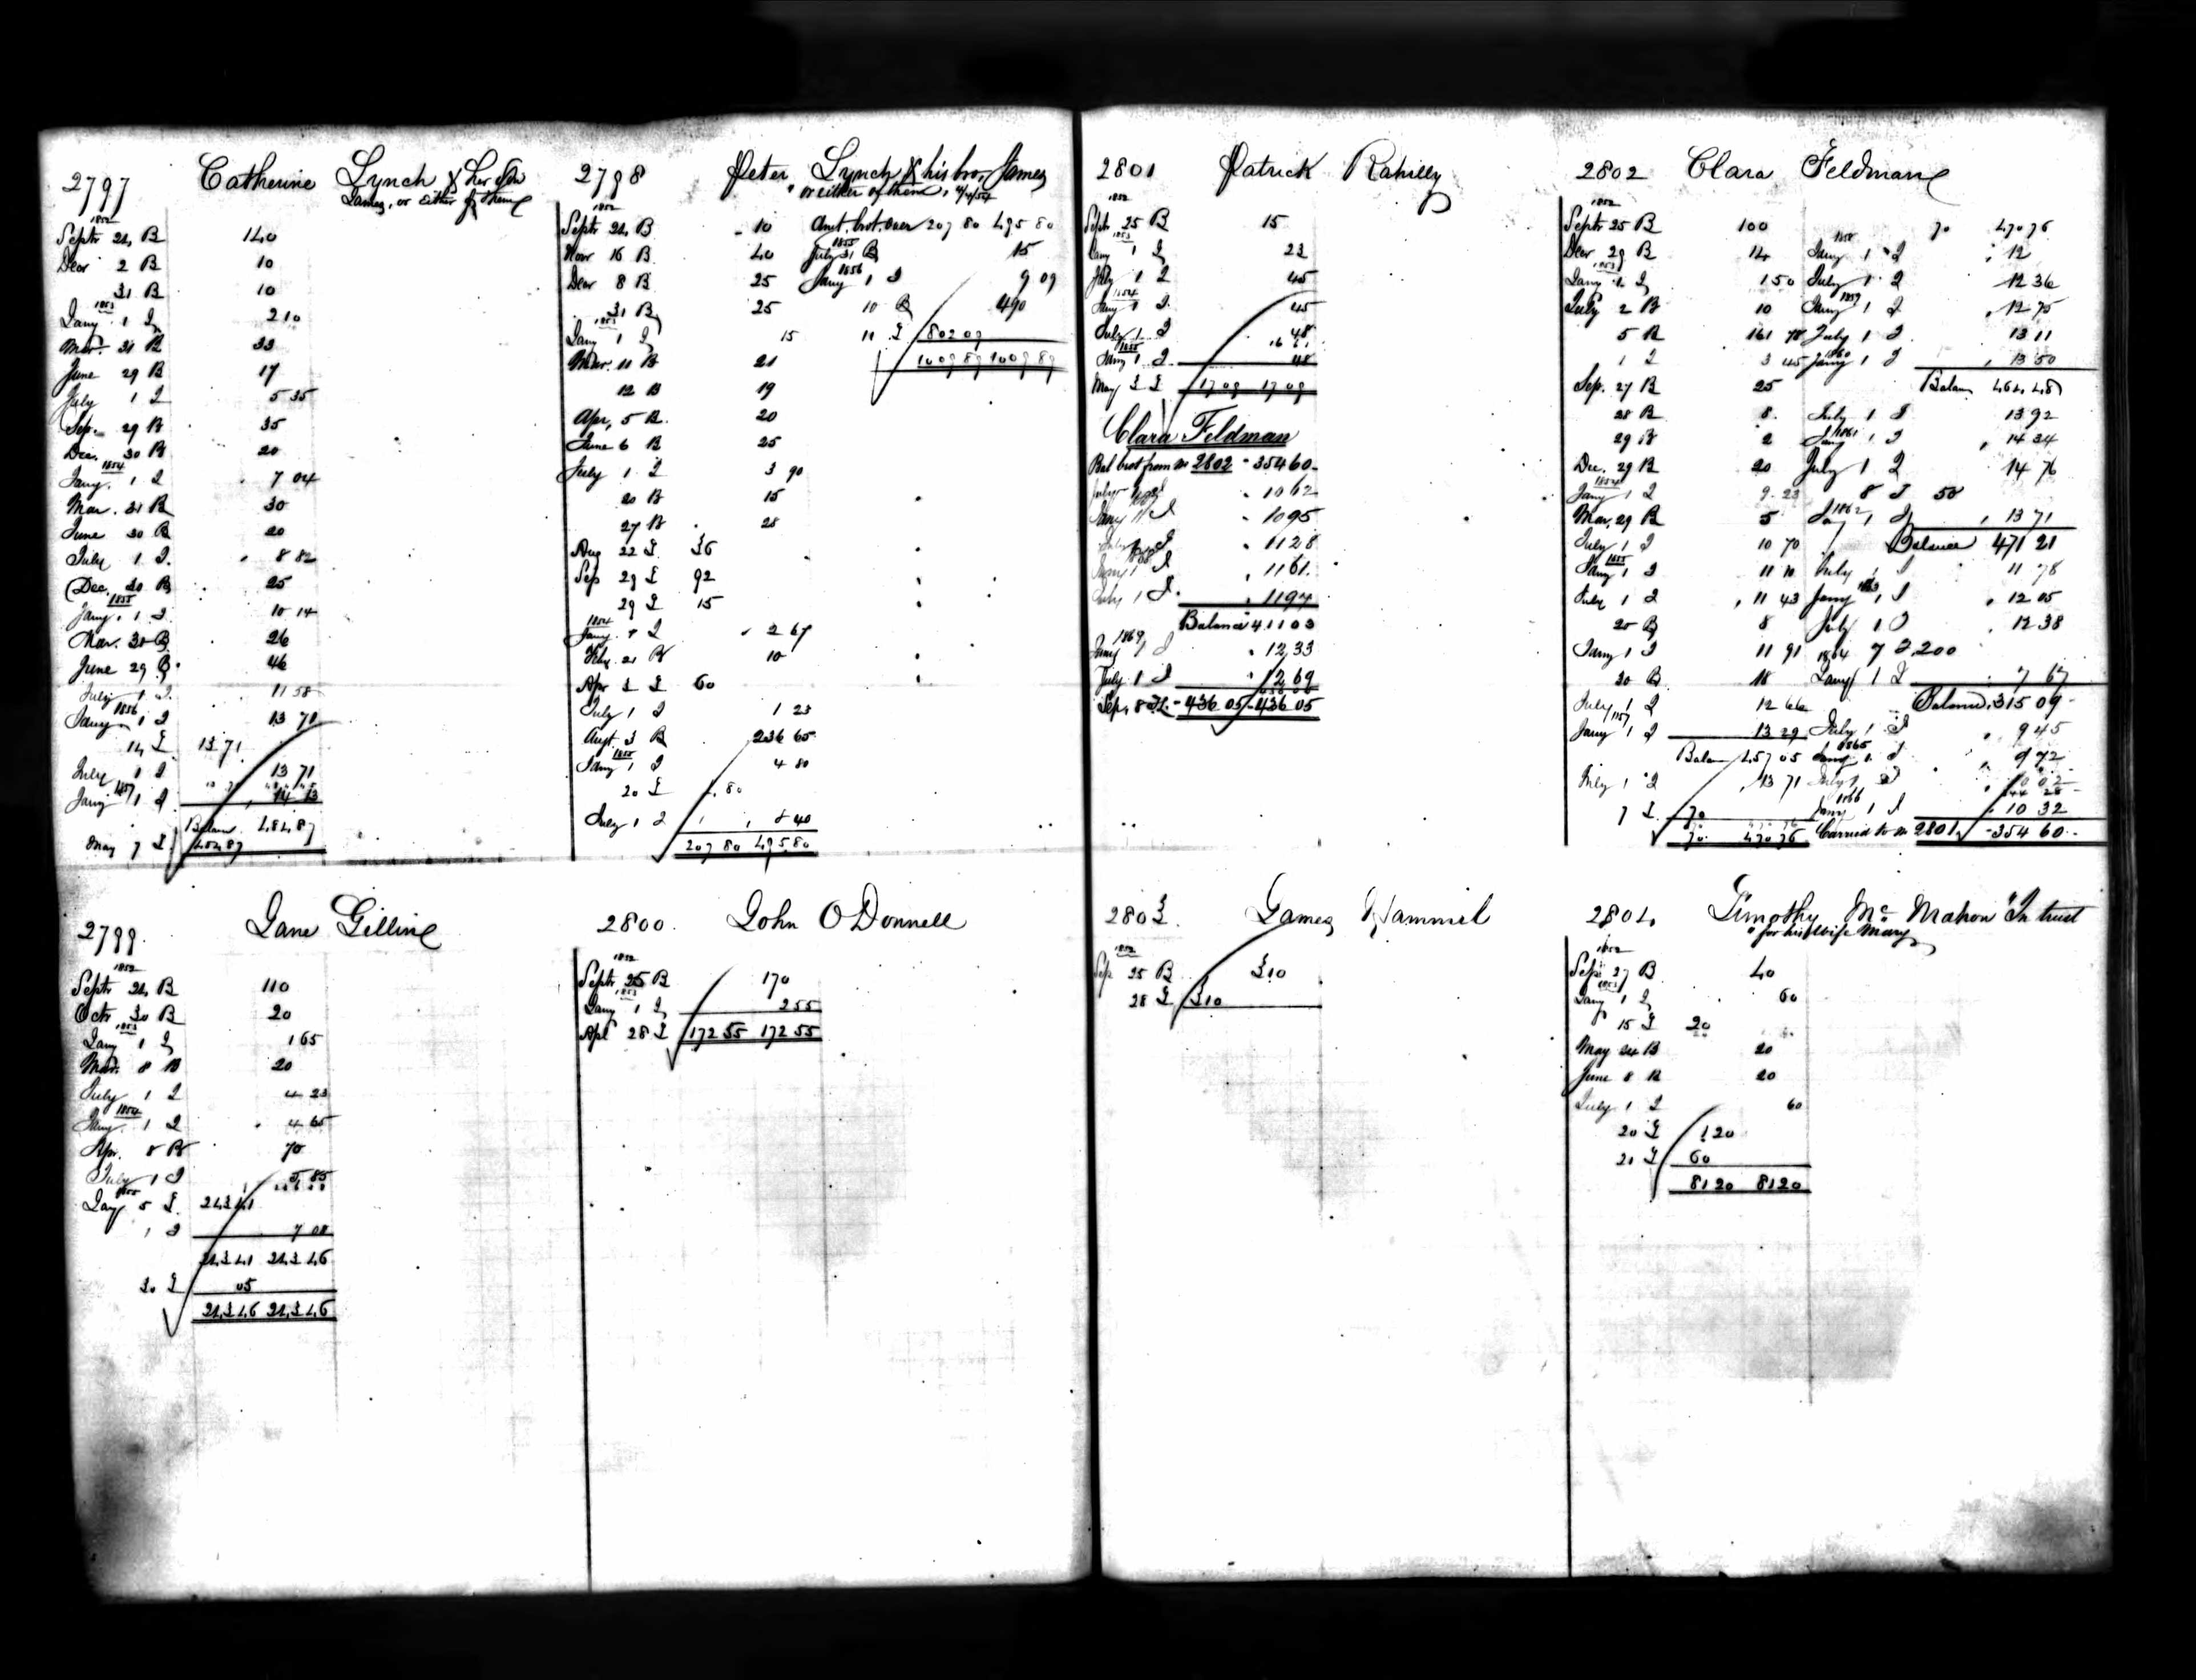 2797 Catherine Lynch & her Son
James, or either of them
1852
Septr 24 B 140
Decr 2 B 10
31 B 10
1853
Jany 1 I 2 10
Mar. 31 B 33
June 29 B 17
July 1 I 5 35
Sep. 29 B 35
Dec. 30 B 20
1854
Jany. 1 I 7 04
Mar. 31 B 30
June 30 B 20
July 1 I 8 82
Dec. 30 B 25
1855
Jany. 1 I 10 14
Mar. 30 B 26
June 29 B 46
July 1 I 11 58
1856
Jany 1 I 13 71
14 £ 13 71
July 1 I 13 71
1857
Jany 1 I 14 13
Balan 484 87
May 7 £ 484 87
2798 Peter Lynch & his bro. James
"or either of them,
1852
Septr 24 B 10
Novr 16 B 40
Decr 8 B 25
31 B 25
1853
Jany 1 I 15
Mar. 11 B 21
12 B 19
Apr. 5 B 20
June 6 B 25
July 1 I 3 90
20 B 15
27 B 28
Aug 22 £ 36
Sep 29 £ 92
29 £ 15
1854
Jany 1 I 2 67
Feby. 21 B 10
Apr 3 £ 60
July 1 I 1 23
Augt. 3 B 236 65
1855
Jany 1 I 4 80
20 £ 4 80
July 1 I 8 40
207 80 495 80
Amt. brot. over 207 80 495 80
1855
July 31 B 15
1856
Jany 1 I 9 09
10 B 490
11 £ 802 09
1009 89 1009 89
2799 Jane Gilline
1852
Septr 24 B 110
Octr 30 B 20
1853
Jany 1 I 1 65
Mar. 8 B 20
July 1 I 4 23
1854
Jany. 1 I 4 65
Apr. 8 B 70
July 1 I 5 85
1855
Jany 5 £ 243 41
1 I 7 08
243 41 243 46
30 £ 05
243 46 243 46
2800 John O'Donnell
1852
Septr 25 B 170
1853
Jany 1 I 2 55
Apl 28 £ 172 55 172 55
2801 Patrick Rahilly
1852
Septr 25 B 15
1853
Jany 1 I 23
July 1 I 45
1854
Jany 1 I 45
July 1 I 48
1855
Jany 1 I 48
May 3 £ 17 09 17 09
Clara Feldman
Bal brot from No 2802 354 60
July 1 I 10 62
Jany 1 I 10 95
July 1 I 11 28
1868
Jany 1 I 11 61
July 1 I 11 94
Balance 411 03
1869
Jany 1 I 12 33
July 1 I 12 69
Sep. 8 £ 436 05 436 05
2802 Clara Feldman
1852
Septr 25 B 100
Decr 29 B 14
1853
Jany 1 I 1 50
July 2 B 10
5 B 161 78
1 I 3 45
Sep. 27 B 25
28 B 8
29 B 2
Dec. 29 B 20
1854
Jany 1 I 9 23
Mar. 29 B 5
July 1 I 10 70
1855
Jany 1 I 11 10
July 1 I 11 43
25 B 8
Jany 1 I 11 91
30 B 18
July 1 I 12 66
1857
Jany 1 I 13 29
Balan 457 05
July 1 I 13 71
7 £ 70
70 470 76
70 470 76
1858
Jany 1 I 12
July 1 I 12 36
1859
Jany 1 I 12 75
July 1 I 13 11
1860
Jany 1 I 13 50
Balan 464 48
July 1 I 13 92
1861
Jany 1 I 14 34
July 1 I 14 76
8 £ 50
1862
Jany 1 I 13 71
Balance 471 21
July 1 I 11 78
1863
Jany 1 I 12 05
July 1 I 12 38
7 £ 200
1864
Jany 1 I 7 67
Balance 315 09
July 1 I 9 45
1865
Jany 1 I 9 72
July 1 I 10 02
1866
Jany 1 I 10 32
Carried to No 2801 354 60
2803 James Hammil
1852
Sep 25 B 310
28 £ 310
2804 Timothy McMahon "In trust
"for his Wife Mary
1852
Sep. 27 B 40
1853
Jany 1 I 60
15 £ 20
May 24 B 20
June 8 B 20
July 1 I 60
20 £ 1 20
21 £ 60
81 20 81 20